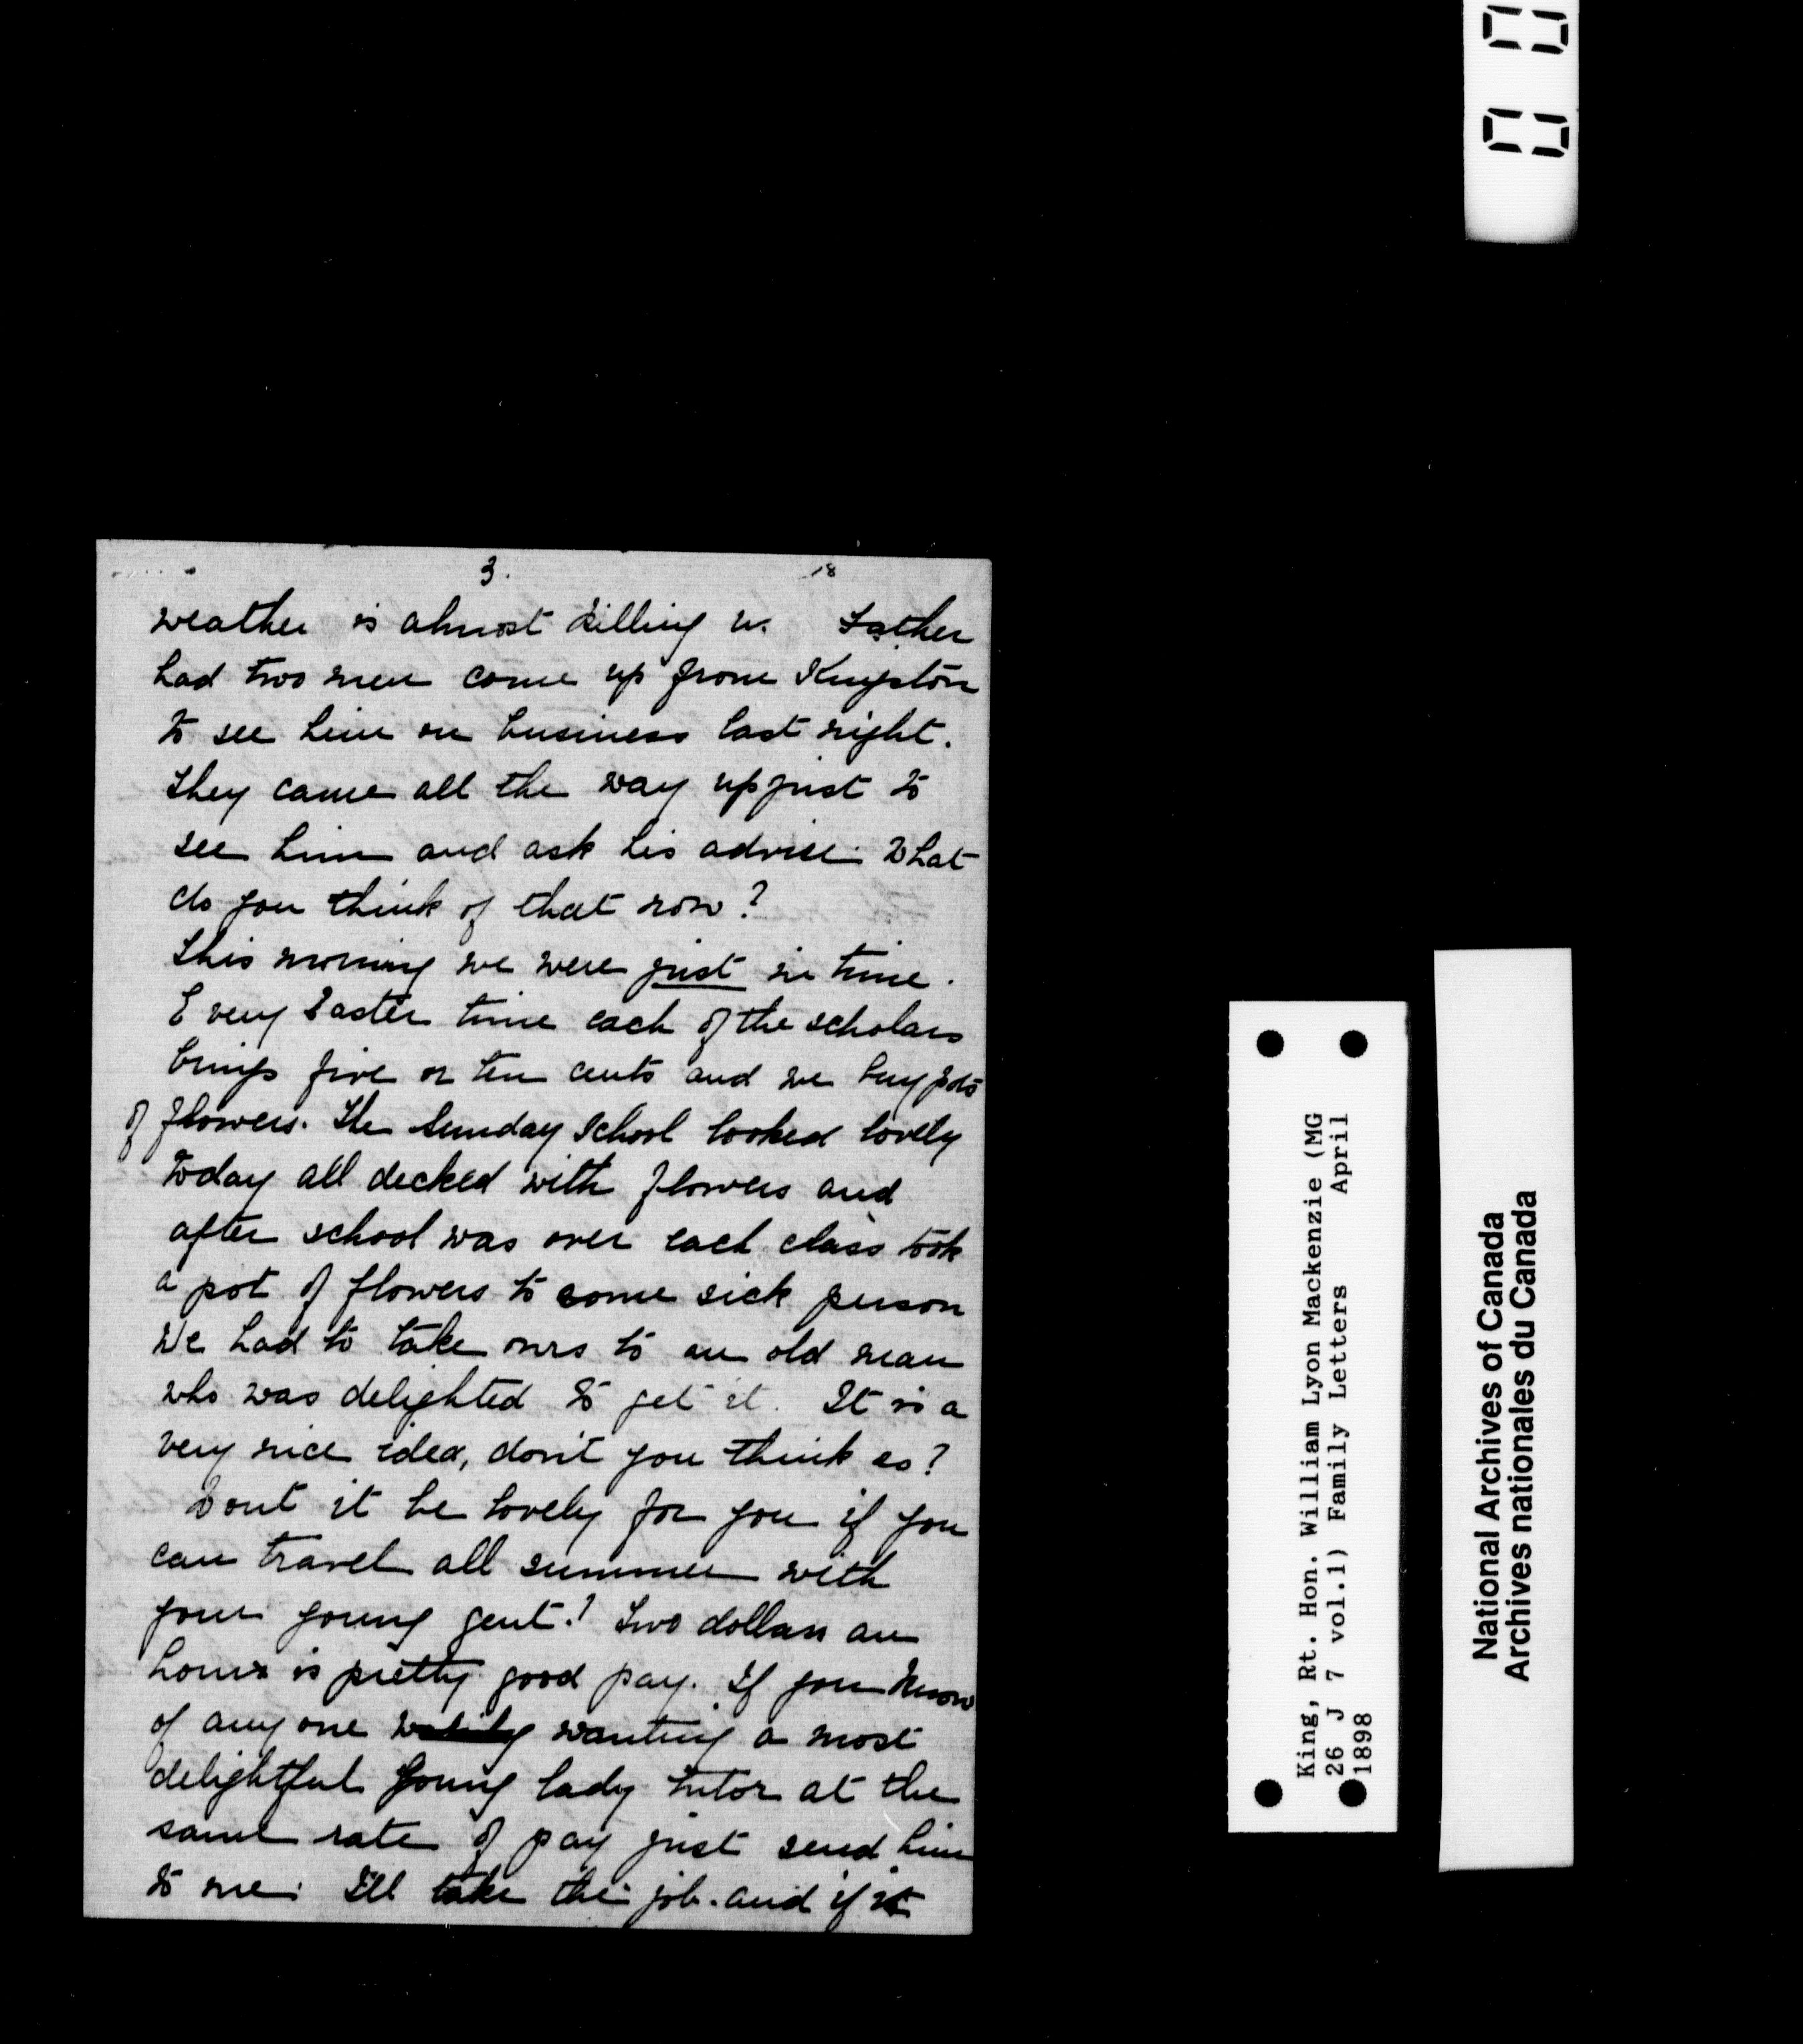 3.
18
weather is almost killing us. Father
had two men come up from Kingston
to see him on business last night.
They came all the way up just to
see him and ask his advise. What
do you think of that now?
This morning we were just in time.
Every Easter time each of the scholars
brings five or ten cents and we buy pots
of flowers. The Sunday School looked lovely
today all decked with flowers and
after school was over each class took
a pot of flowers to some sick person
We had to take ours to an old man
who was delighted to get it. It is a
very nice idea, don't you think so?
Wont it be lovely for you if you
can travel all summer with
your young gent? Two dollars an
hour is pretty good pay. If you know
of any one wanting a most
delightful young lady tutor at the
same rate of pay just send him
to me. I'll take the job. and if it
King, Rt. Hon. William Lyon Mackenzie (MG
26 J 7 vol.1) Family Letters April
1898
National Archives of Canada
Archives nationales du Canada